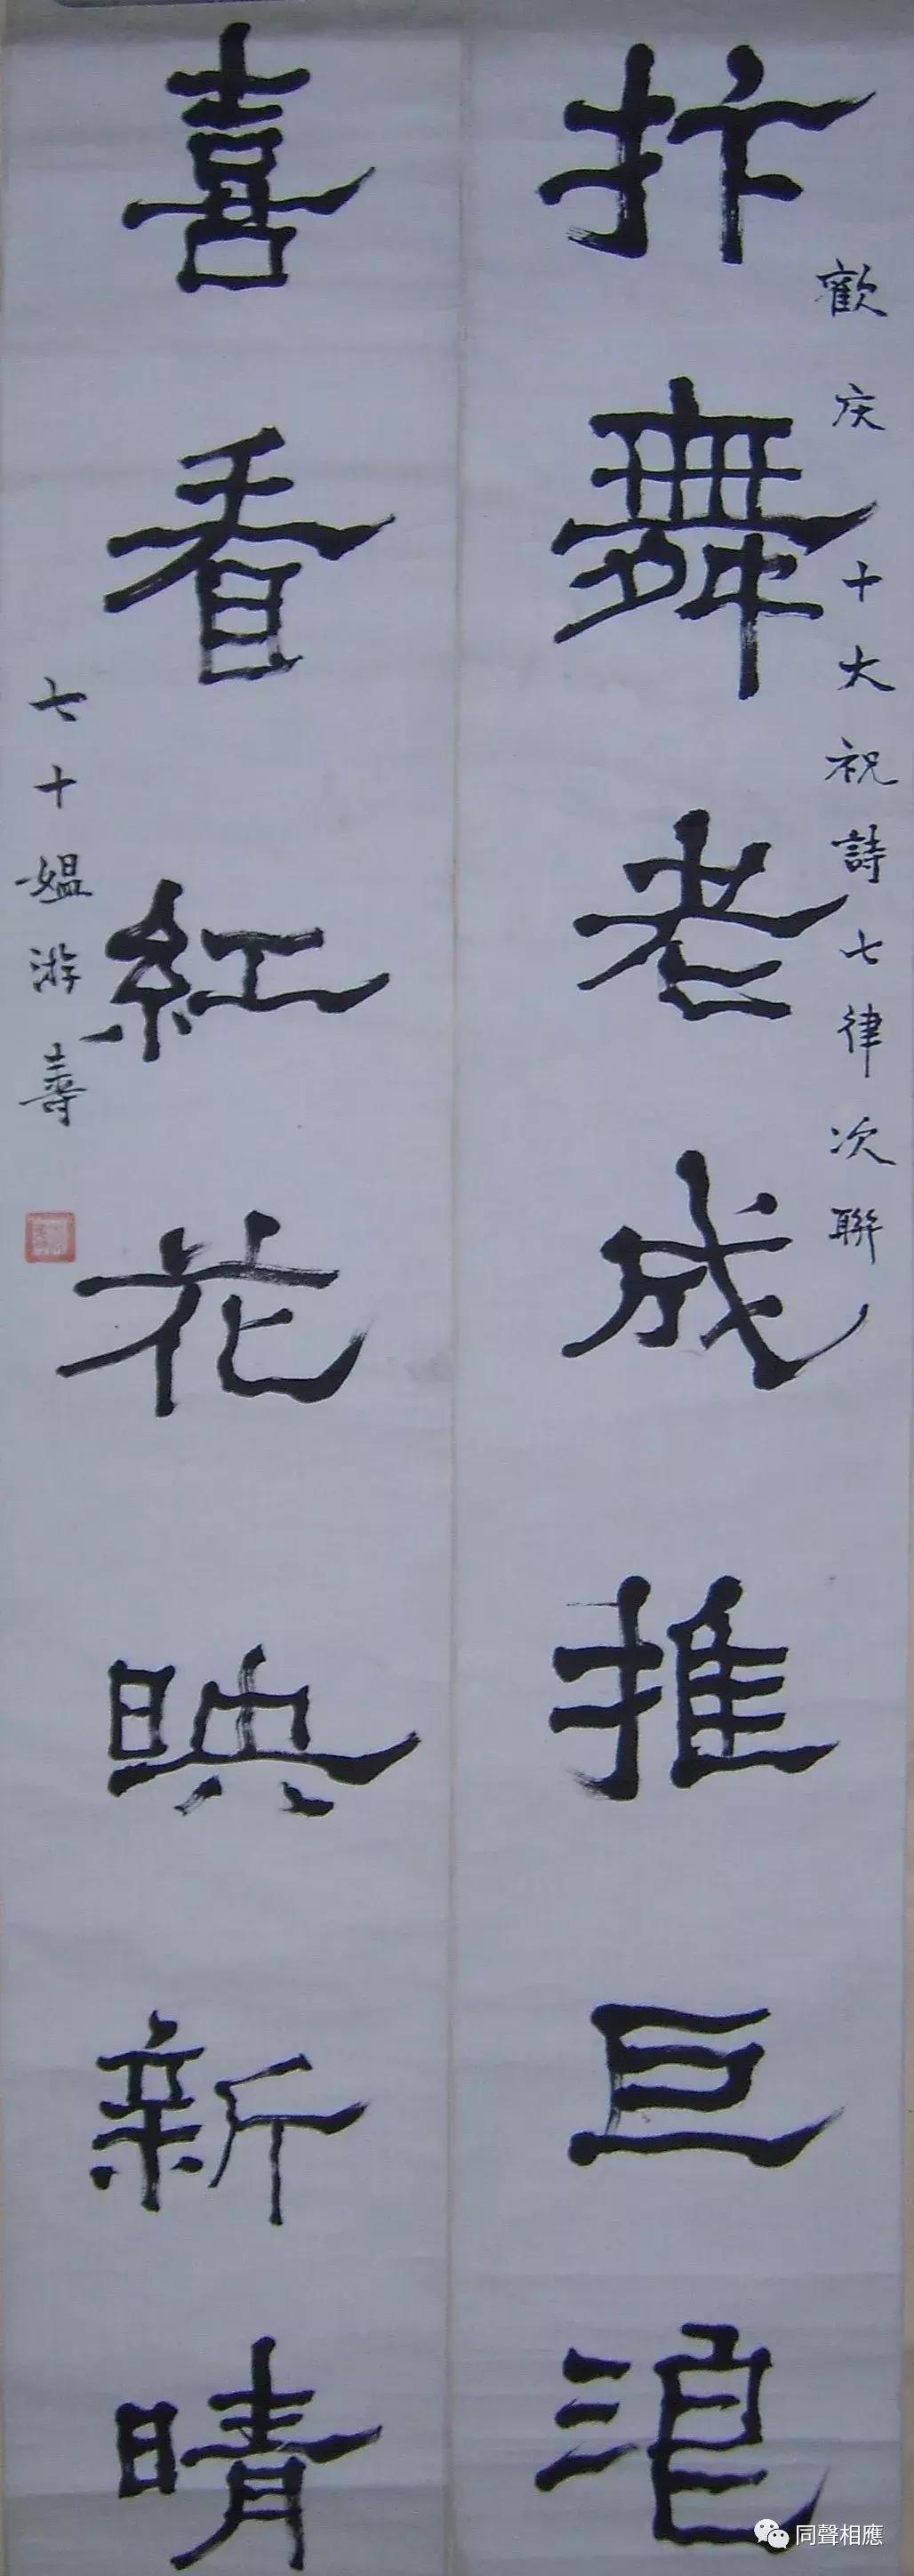 歡庆十大祝詩七律次聯
抃舞老成推巨浪
喜看紅花映新晴
七十媪游壽
同聲相應